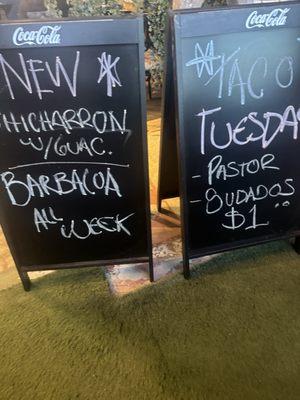 Coca-Cola
NEW
CHICHARRON
W/GUAC.
BARBACOA
All WEEK
Coca-Cola
TACO
TUESDA
- PASTOR
- SUDADOS
$1